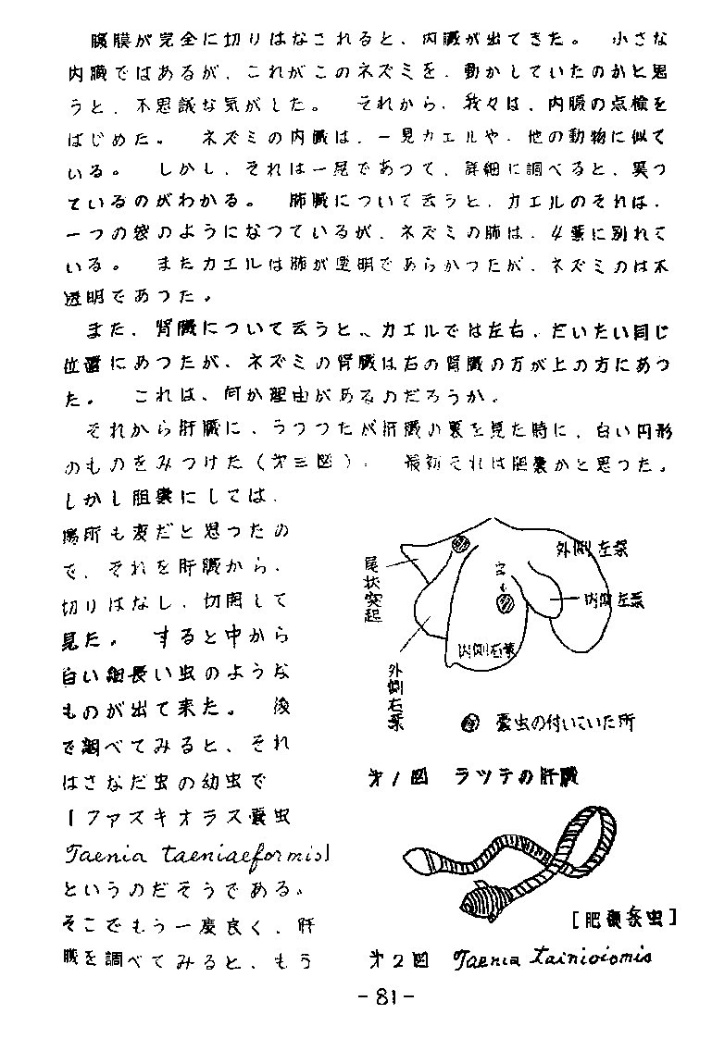 腹膜が完全に切りはなされると、内臓が出てきた。 小さな
内臓ではあるが、これがこのネズミを、動かしていたのかと思
うと、不思議な気がした。 それから、我々は、内臓の点検を
はじめた。 ネズミの内臓は、一見カエルや、他の動物に似て
いる。 しかし、それは一見であつて、詳細に調べると、異つ
ているのがわかる。 肺臓について云うと、カエルのそれは、
一つの袋のようになつているが、ネズミの肺は、4葉に別れて
いる。 またカエルは肺が透明であらかつたが、ネズミのは不
透明であつた。
また、腎臓について云うと、カエルでは左右、だいたい同じ
位置にあつたが、ネズミの腎臓は右の腎臓の方が上の方にあつ
た。 これは、何か理由があるのだろうか。
それから肝臓に、うつつたが肝臓の裏を見た時に、白い円形
のものをみつけた(才三図)。 最初それは胆嚢かと思つた。
しかし胆嚢にしては、
場所も変だと思つたの
で、それを肝臓から、
切りはなし、切開して
見た。 すると中から
白い細長い虫のような
ものが出て来た。 後
で調べてみると、それ
はさなだ虫の幼虫で
「ファスキオラス嚢虫
Taenia taeniaeformis」
というのだそうである。
そこでもう一度良く、肝
臓を調べてみると、もう
尾状突起
外側左葉
内側左葉
内側右葉
外側右葉
嚢虫の付いていた所
才1図 ラツテの肝臓
[肥嚢条虫]
才2図 Taenia tainioiomis
-81-